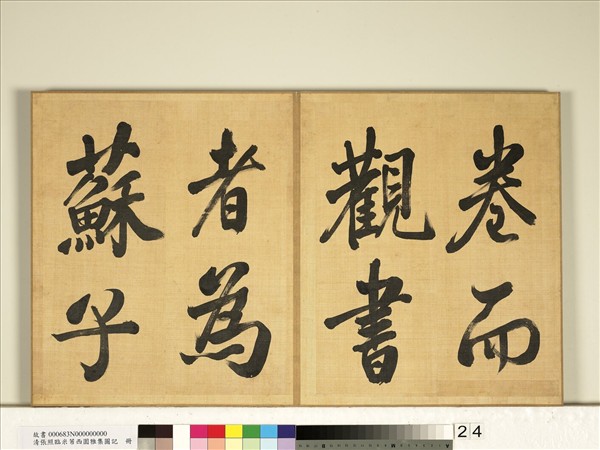 卷而
觀書
者為
蘇子
故書 000683N000000000
清張照臨米芾西園雅集圖記 冊
24